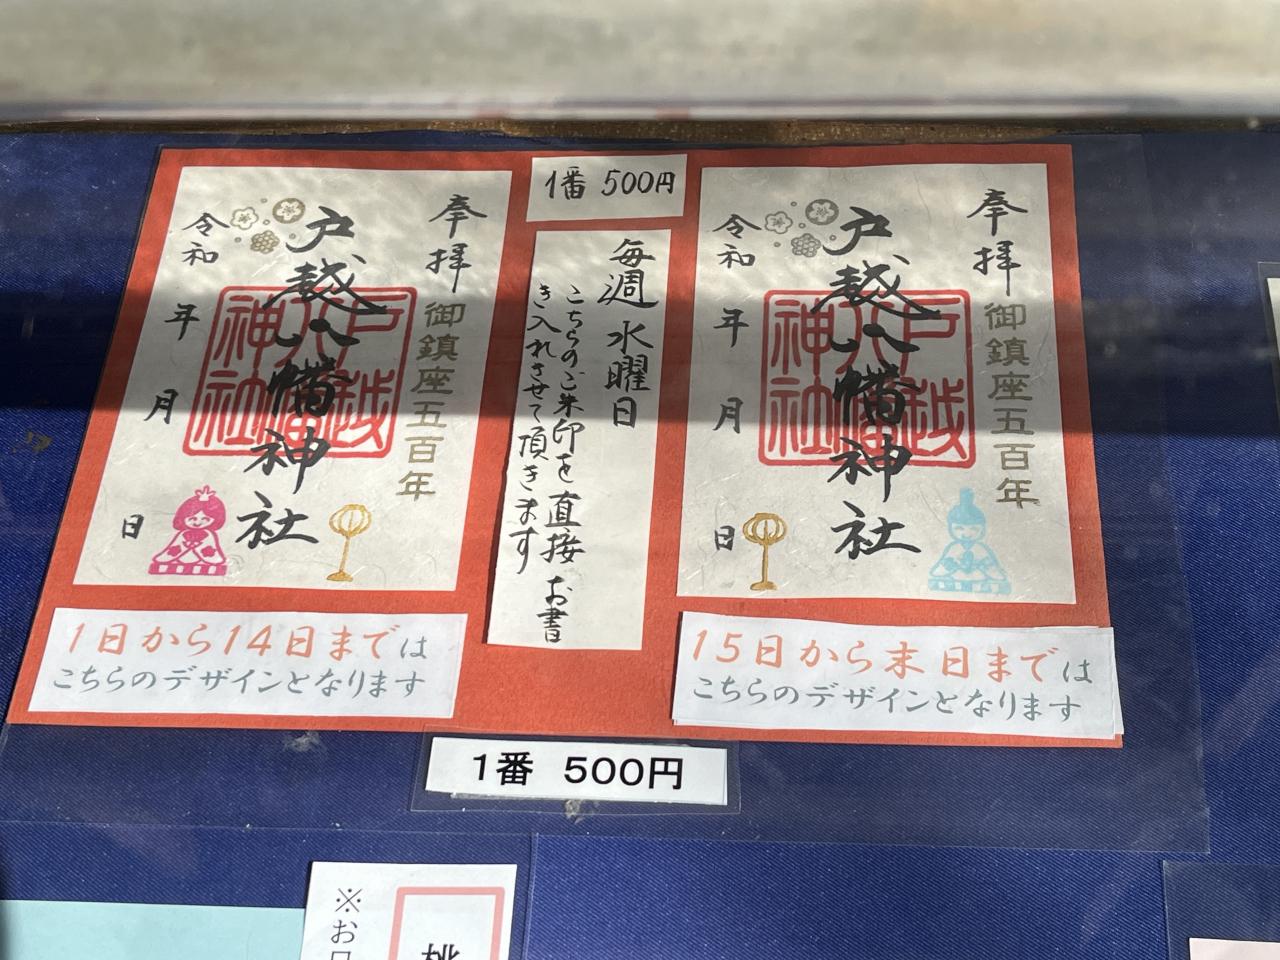 奉拝
御鎮座五百年
戸越八幡神社
戸越八幡神社
令和 年 月 日
1日から14日までは
こちらのデザインとなります
1番 500円
毎週水曜日
こちらのご朱印を直接お書
き入れさせて頂きます
奉拝
御鎮座五百年
戸越八幡神社
戸越八幡神社
令和 年 月 日
15日から末日までは
こちらのデザインとなります
1番 500円
※お